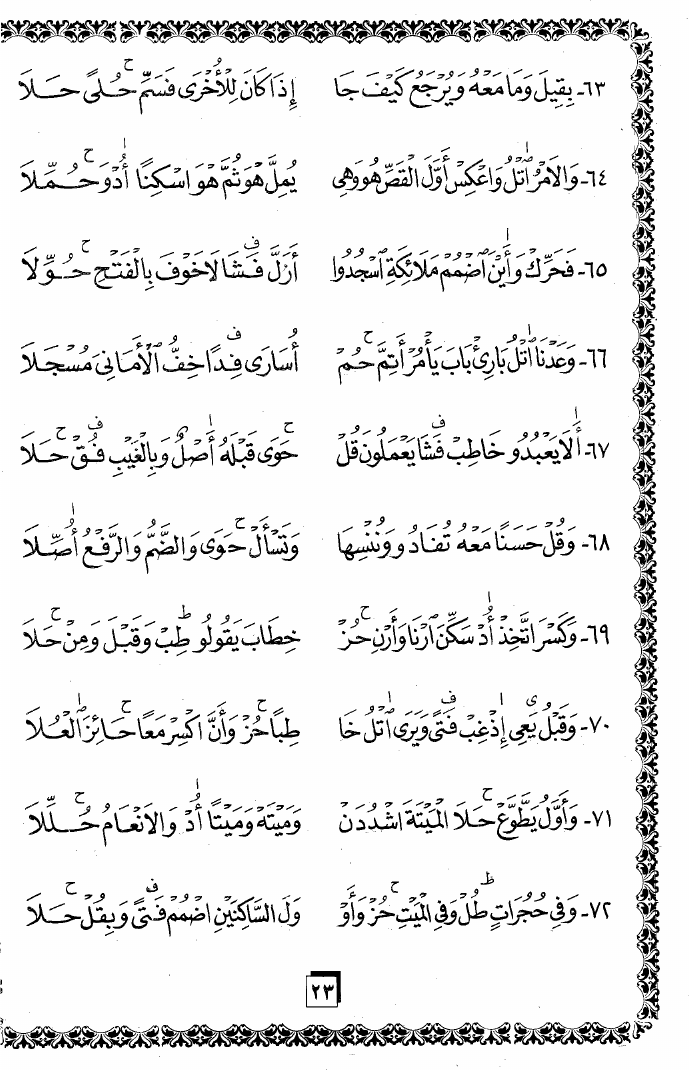 ٦٣- بِقِيلَ وَمَا مَعْهُ وَيُرْجَعُ كَيْفَ جَا إِذَا كَانَ لِلْأُخْرَى فَسَمِّ حُلًى حَلَا
٦٤- وَالَامْرُ اتْلُ وَاعْكِسْ أَوَّلَ الْقَصِّ هُوَ وَهِي يُمِلَّ هُوَ ثُمَّ هُوَ اسْكِنًا أُدْ وَحُمِّلَا
٦٥- فَحَرِّكْ وَأَيْنَ اضْمُمْ مَلَائِكَةِ اسْجُدُوا أَزَلَّ فَشَا لَا خَوْفَ بِالْفَتْحِ حُوِّلَا
٦٦- وَعَدْنَا اتْلُ بَارِئْ بَابَ يَأْمُرْ أَتِمَّ حُمْ أُسَارَى فِدًا خِفُّ الْأَمَانِيَ مُسْجَلَا
٦٧- أَلَا يَعْبُدُو خَاطِبْ فَشَا يَعْمَلُونَ قُلْ حَوَى قَبْلَهُ أَصْلٌ وَبِالْغَيْبِ فُقْ حَلَا
٦٨- وَقُلْ حَسَنًا مَعْهُ تُفَادُو وَنُنْسِهَا وَتَسْأَلْ حَوَى وَالضَّمُّ وَالرَّفْعُ أُصِّلَا
٦٩- وَكَسْرَ اتَّخِذْ أُدْ سَكِّنَ ارْنَا وَأَرْنِ حُزْ خِطَابَ يَقُولُو طِبْ وَقَبْلَ وَمِنْ حَلَا
٧٠- وَقَبْلُ يَعِي إِذْ غِبْ فَتًى وَيَرَى اتْلُ خَا طِبًا حُزْ وَأَنَّ اكْسِرْ مَعًا حَائِزَ الْعُلَا
٧١- وَأَوَّلُ يَطَّوَّعْ حَلَا الْمَيْتَةَ اشْدُدَنْ وَمَيْتَهْ وَمَيْتًا أُدْ وَالَانْعَامُ حُلِّلَا
٧٢- وَفِي حُجُرَاتٍ طُلْ وَفِي الْمَيْتِ حُزْ وَأَوْ وَلَ السَّاكِنَيْنِ اضْمُمْ فَتًى وَبِقُلْ حَلَا
٢٣